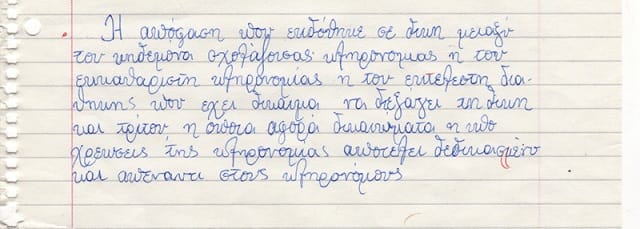 Η απόφαση που εκδόθηκε σε δικη μεταξύ
του κηδεμόνα σχολάζουσας κληρονομιας ή του
εκκαθαριστη κληρονομίας ή του εκτελεστη δια-
θηκης που εχει δικαίωμα να διεξάγει τη δικη
και τρίτου, η οποια αφορά δικαιώματα η υπο
χρεωσεις της κληρονομίας αποτελει δεδικασμένο
και απεναντι στους κληρονόμους